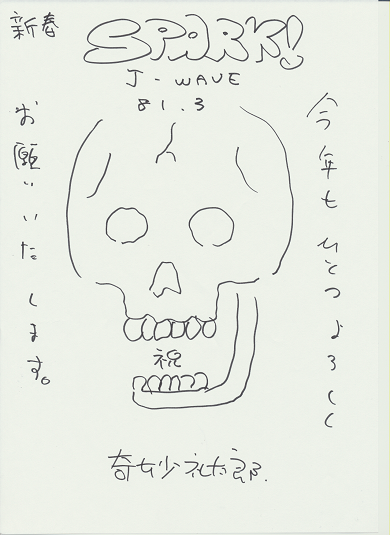 新春
SPARK!
J-WAVE
81.3
今年もひとつよろしく
お願いいたします。
祝
奇妙礼太郎.